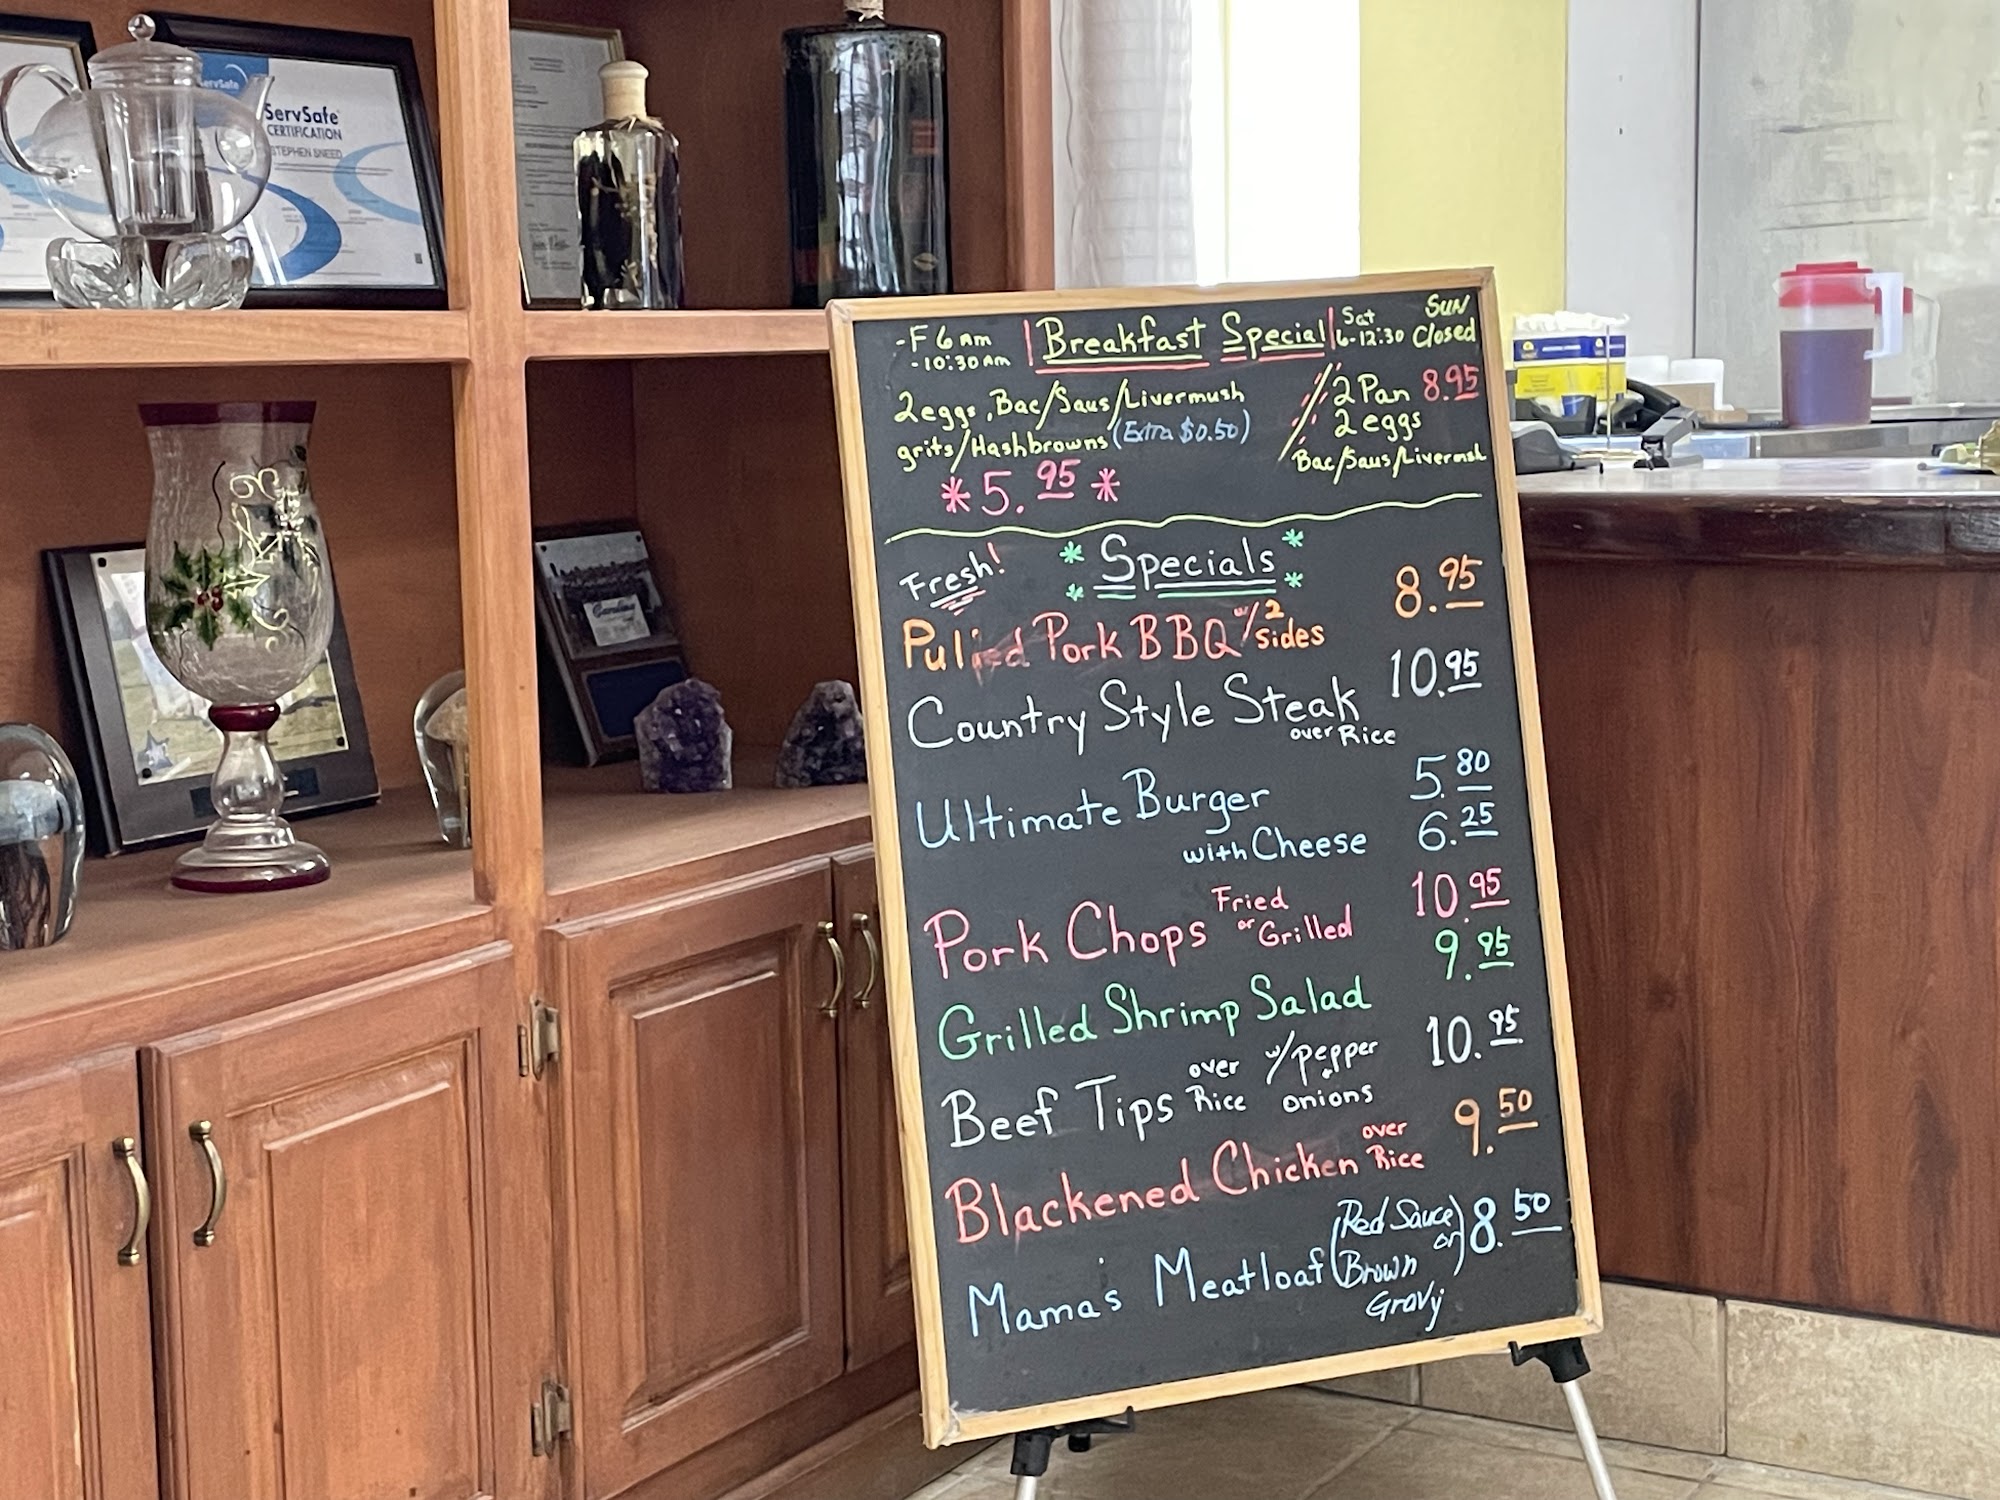 ServSafe
CERTIFICATION
STEPHEN SNEED
-F 6 AM
-10:30 AM
Breakfast Special
Sat
6-12:30
SUN
Closed
2 eggs, Bac/Saus/Livermush
grits/Hashbrowns (Extra $0.50)
*5.95*
2 Pan 8.95
2 eggs
Bac/Saus/Livermsh
Fresh!
* Specials *
Pulled Pork BBQ w/2 sides 8.95
Country Style Steak over Rice 10.95
Ultimate Burger 5.80
with Cheese 6.25
Pork Chops Fried or Grilled 10.95
Grilled Shrimp Salad 9.95
Beef Tips over Rice w/pepper + onions 10.95
Blackened Chicken over Rice 9.50
Mama's Meatloaf (Red Sauce or Brown Gravy) 8.50